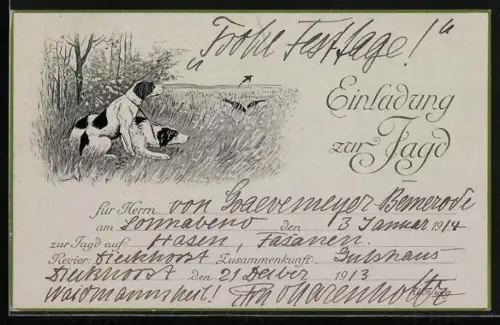 „Frohe Festtage!“
Einladung
zur Jagd
für Herrn von Graevemeyer-Bemerode
am Sonnabend den 3 Januar 1914
zur Jagd auf: Hasen, Fasanen.
Revier: Dieckhorst Zusammenkunft: Gutshaus
Dieckhorst den 21 Decbr 1913
Waidmannsheil!